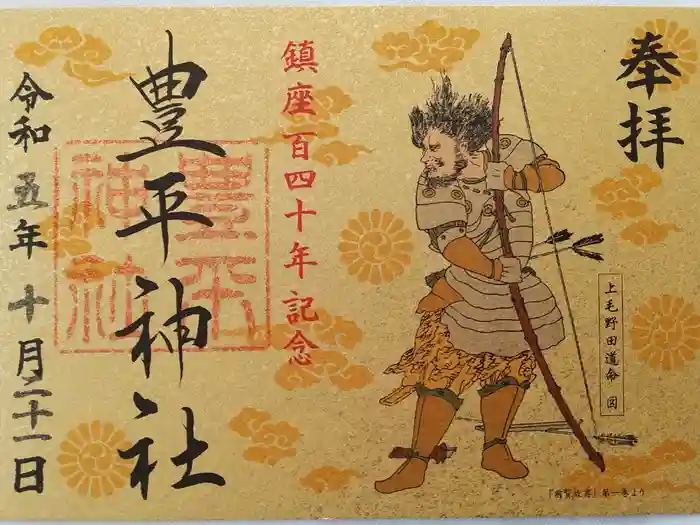 奉拝
上毛野田道命 図
『前賢故実』第一巻より
鎮座百四十年記念
豊平神社
豊平
神社
令和五年十月二十一日